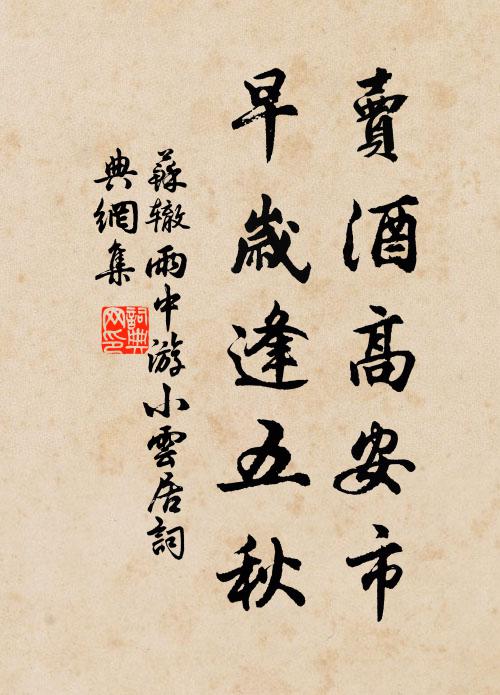 賣酒高安市
早歲逢五秋
蘇辙雨中游小雲居詞
典網集
詞典
网印